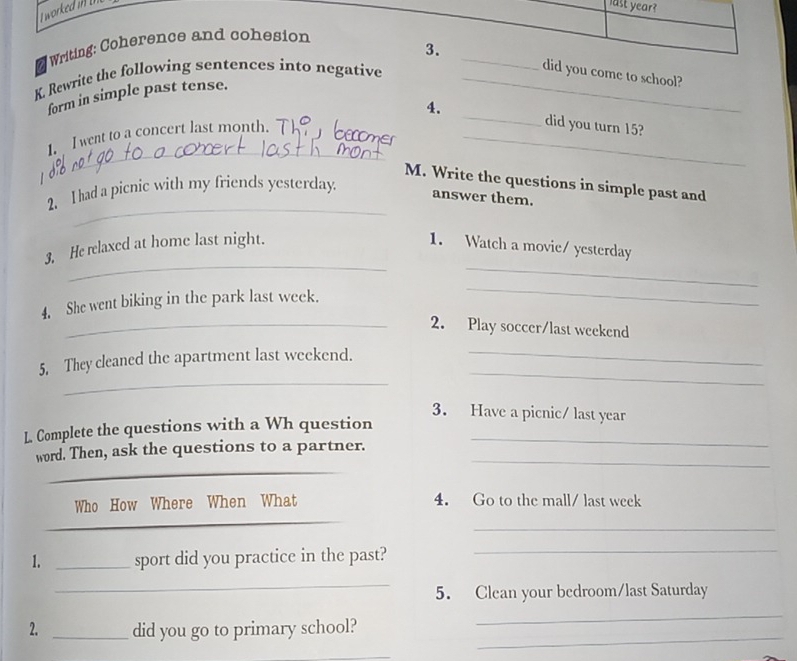 I worked in
last year?
Writing: Coherence and cohesion
K. Rewrite the following sentences into negative
form in simple past tense.
1. I went to a concert last month. This becomer
I did not go to a concert lasth mont
2. I had a picnic with my friends yesterday.
3. He relaxed at home last night.
4. She went biking in the park last week.
5. They cleaned the apartment last weekend.
L. Complete the questions with a Wh question
word. Then, ask the questions to a partner.
Who How Where When What
1. ________ sport did you practice in the past?
2. ________ did you go to primary school?
3. ________ did you come to school?
4. ________ did you turn 15?
M. Write the questions in simple past and
answer them.
1. Watch a movie/ yesterday
2. Play soccer/last weekend
3. Have a picnic/ last year
4. Go to the mall/ last week
5. Clean your bedroom/last Saturday